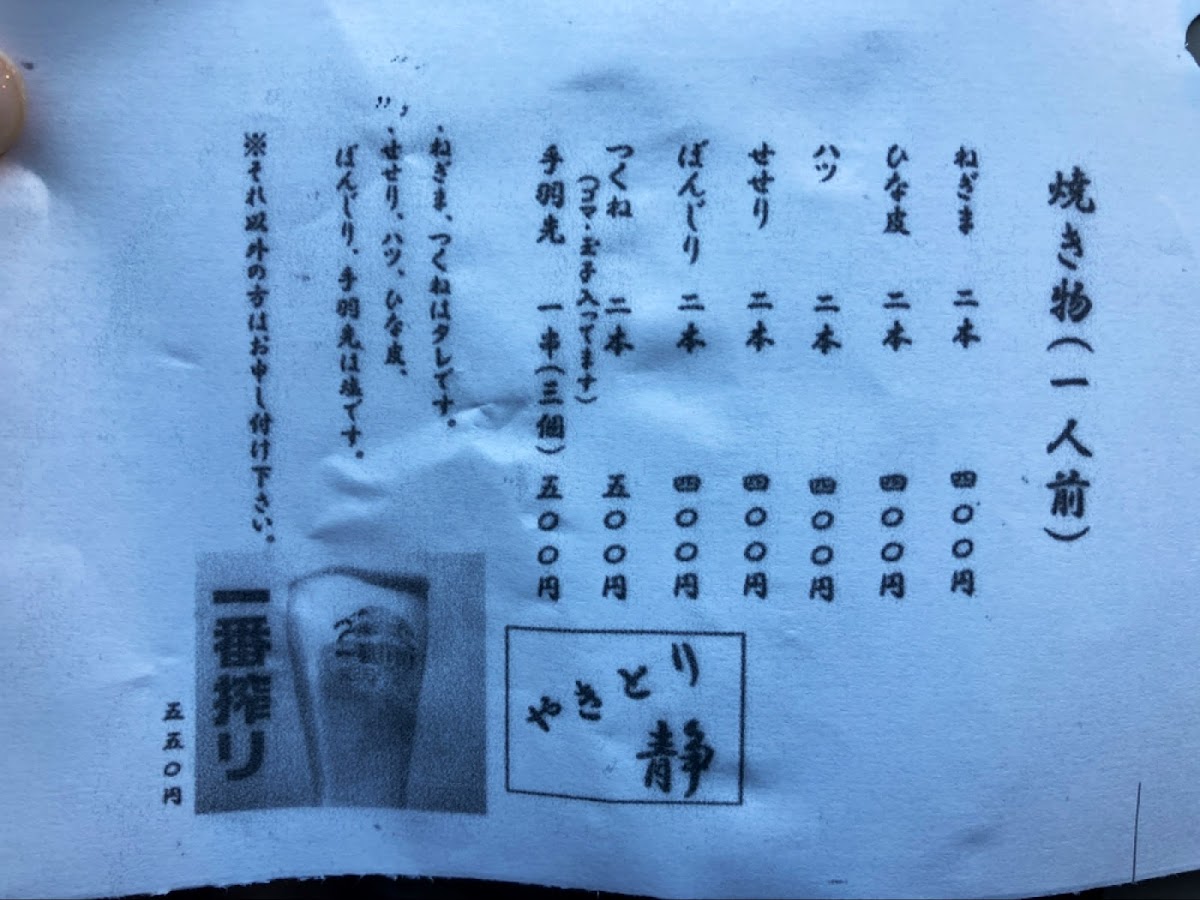 焼き物(一人前)
ねぎま 二本 四〇〇円
ひな皮 二本 四〇〇円
ハツ 二本 四〇〇円
せせり 二本 四〇〇円
ぼんじり 二本 四〇〇円
つくね 二本 五〇〇円
(ゴマ・玉子入ってます)
手羽先 一串(三個) 五〇〇円
・ねぎま、つくねはタレです。
・せせり、ハツ、ひな皮、
ぼんじり、手羽先は塩です。
※それ以外の方はお申し付け下さい。
やきとり
静
一番搾り
五五〇円